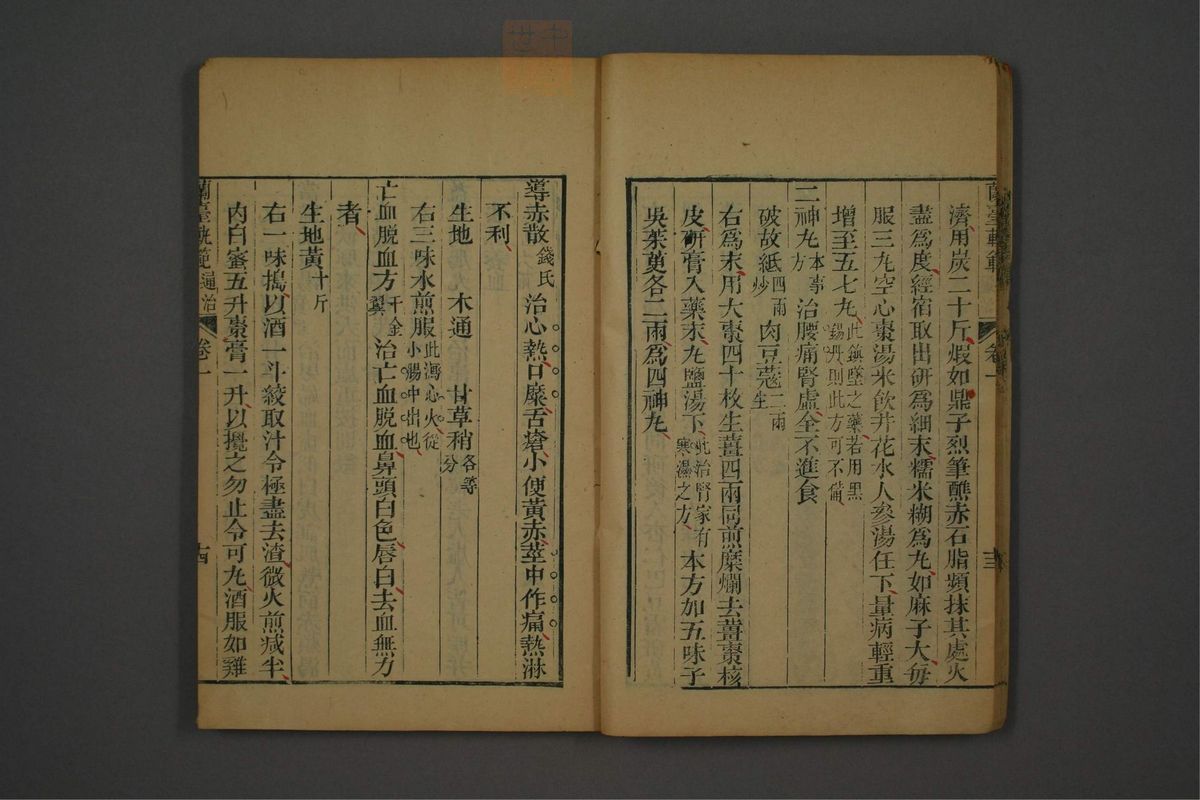 蘭臺軌範
卷一
三
濟用炭二十斤煆如鼎子烈筆蘸赤石脂頻抹其處火
盡爲度經宿取出研爲細末糯米糊爲丸如麻子大每
服三丸空心棗湯米飲井花水人參湯任下量病輕重
增至五七丸此鎮墜之藥若用黑錫丹則此方可不備
二神丸本事方治腰痛腎虛全不進食
破故紙四兩炒 肉豆蔻二兩生
右爲末用大棗四十枚生薑四兩同煎糜爛去薑棗核
皮研膏入藥末丸鹽湯下此治腎家有寒濕之方本方加五味子
吳茱萸各二兩爲四神丸
導赤散錢氏治心熱口糜舌瘡小便黃赤莖中作痛熱淋
不利
生地 木通 甘草稍各等分
右三味水煎服此瀉心火從小腸中出也
亡血脫血方千金翼治亡血脫血鼻頭白色唇白去血無力
者
生地黃十斤
右一味擣以酒一斗絞取汁令極盡去渣微火煎減半
內白蜜五升棗膏一升以攪之勿止令可丸酒服如雞
蘭臺軌範 通治
卷一
十四